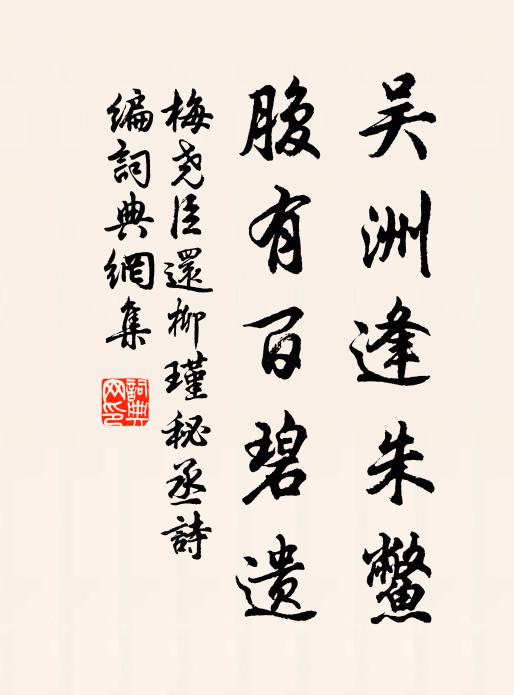 吴洲逢朱鱉
腹有百碧遗
梅尧臣還柳瑾秘丞詩
編詞典網集
詞典网印